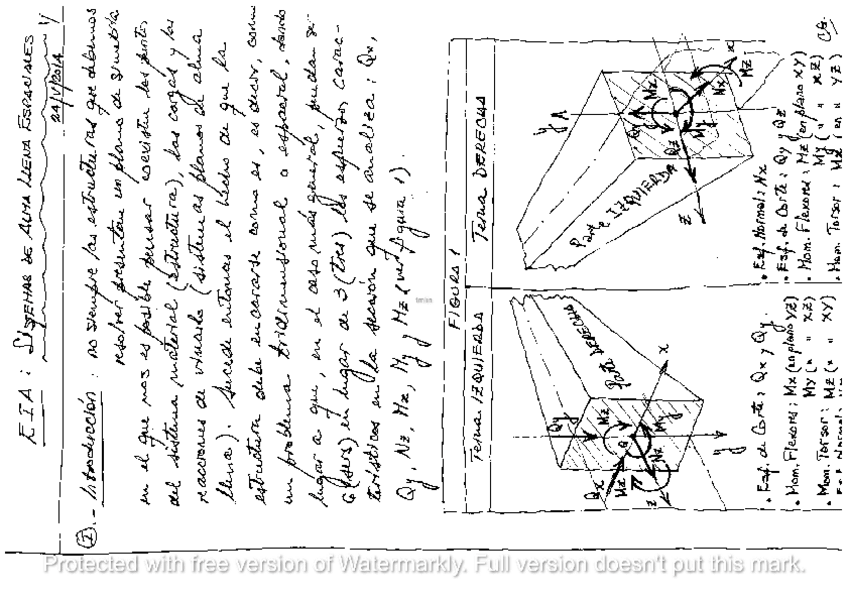 EIA: SISTEMAS DE ALMA LLENA ESPACIALES
1/
24/V/2014
I.- Introducción: no siempre las estructuras que debemos
resolver presentan un plano de simetría
en el que nos es posible pensar coexisten los puntos
del sistema material (estructura), las cargas y las
reacciones de vínculo (sistemas planos de alma
llena). Sucede entonces el hecho de que la
estructura debe encararse como es, es decir, como
un problema tridimensional o espacial, dando
lugar a que, en el caso más general, puedan se-
6 (seis) en lugar de 3 (tres) los esfuerzos carac-
terísticos en la sección que se analiza: Qx,
Qy, Nz, Mx, My y Mz (ver figura 1).
FIGURA 1
Terna IZQUIERDA
Parte DERECHA
Qy
Qx
Mz
Mx
My
Nz
G
x
y
z
• Esf. de Corte: Qx y Qy.
• Mom. Flexores: Mx (en plano YZ)
My (" " XZ)
• Mom. Torsor: Mz (" " XY)
Terna DERECHA
Parte IZQUIERDA
y
Qy
Mx
My
Qz
Nx
Mz
x
z
• Esf. Normal: Nx
• Esf. de Corte: Qy y Qz
• Mom. Flexores: Mz (en plano XY)
My (" " XZ)
• Mom. Torsor: Mx (en " YZ)
Protected with free version of Watermarkly. Full version doesn't put this mark.